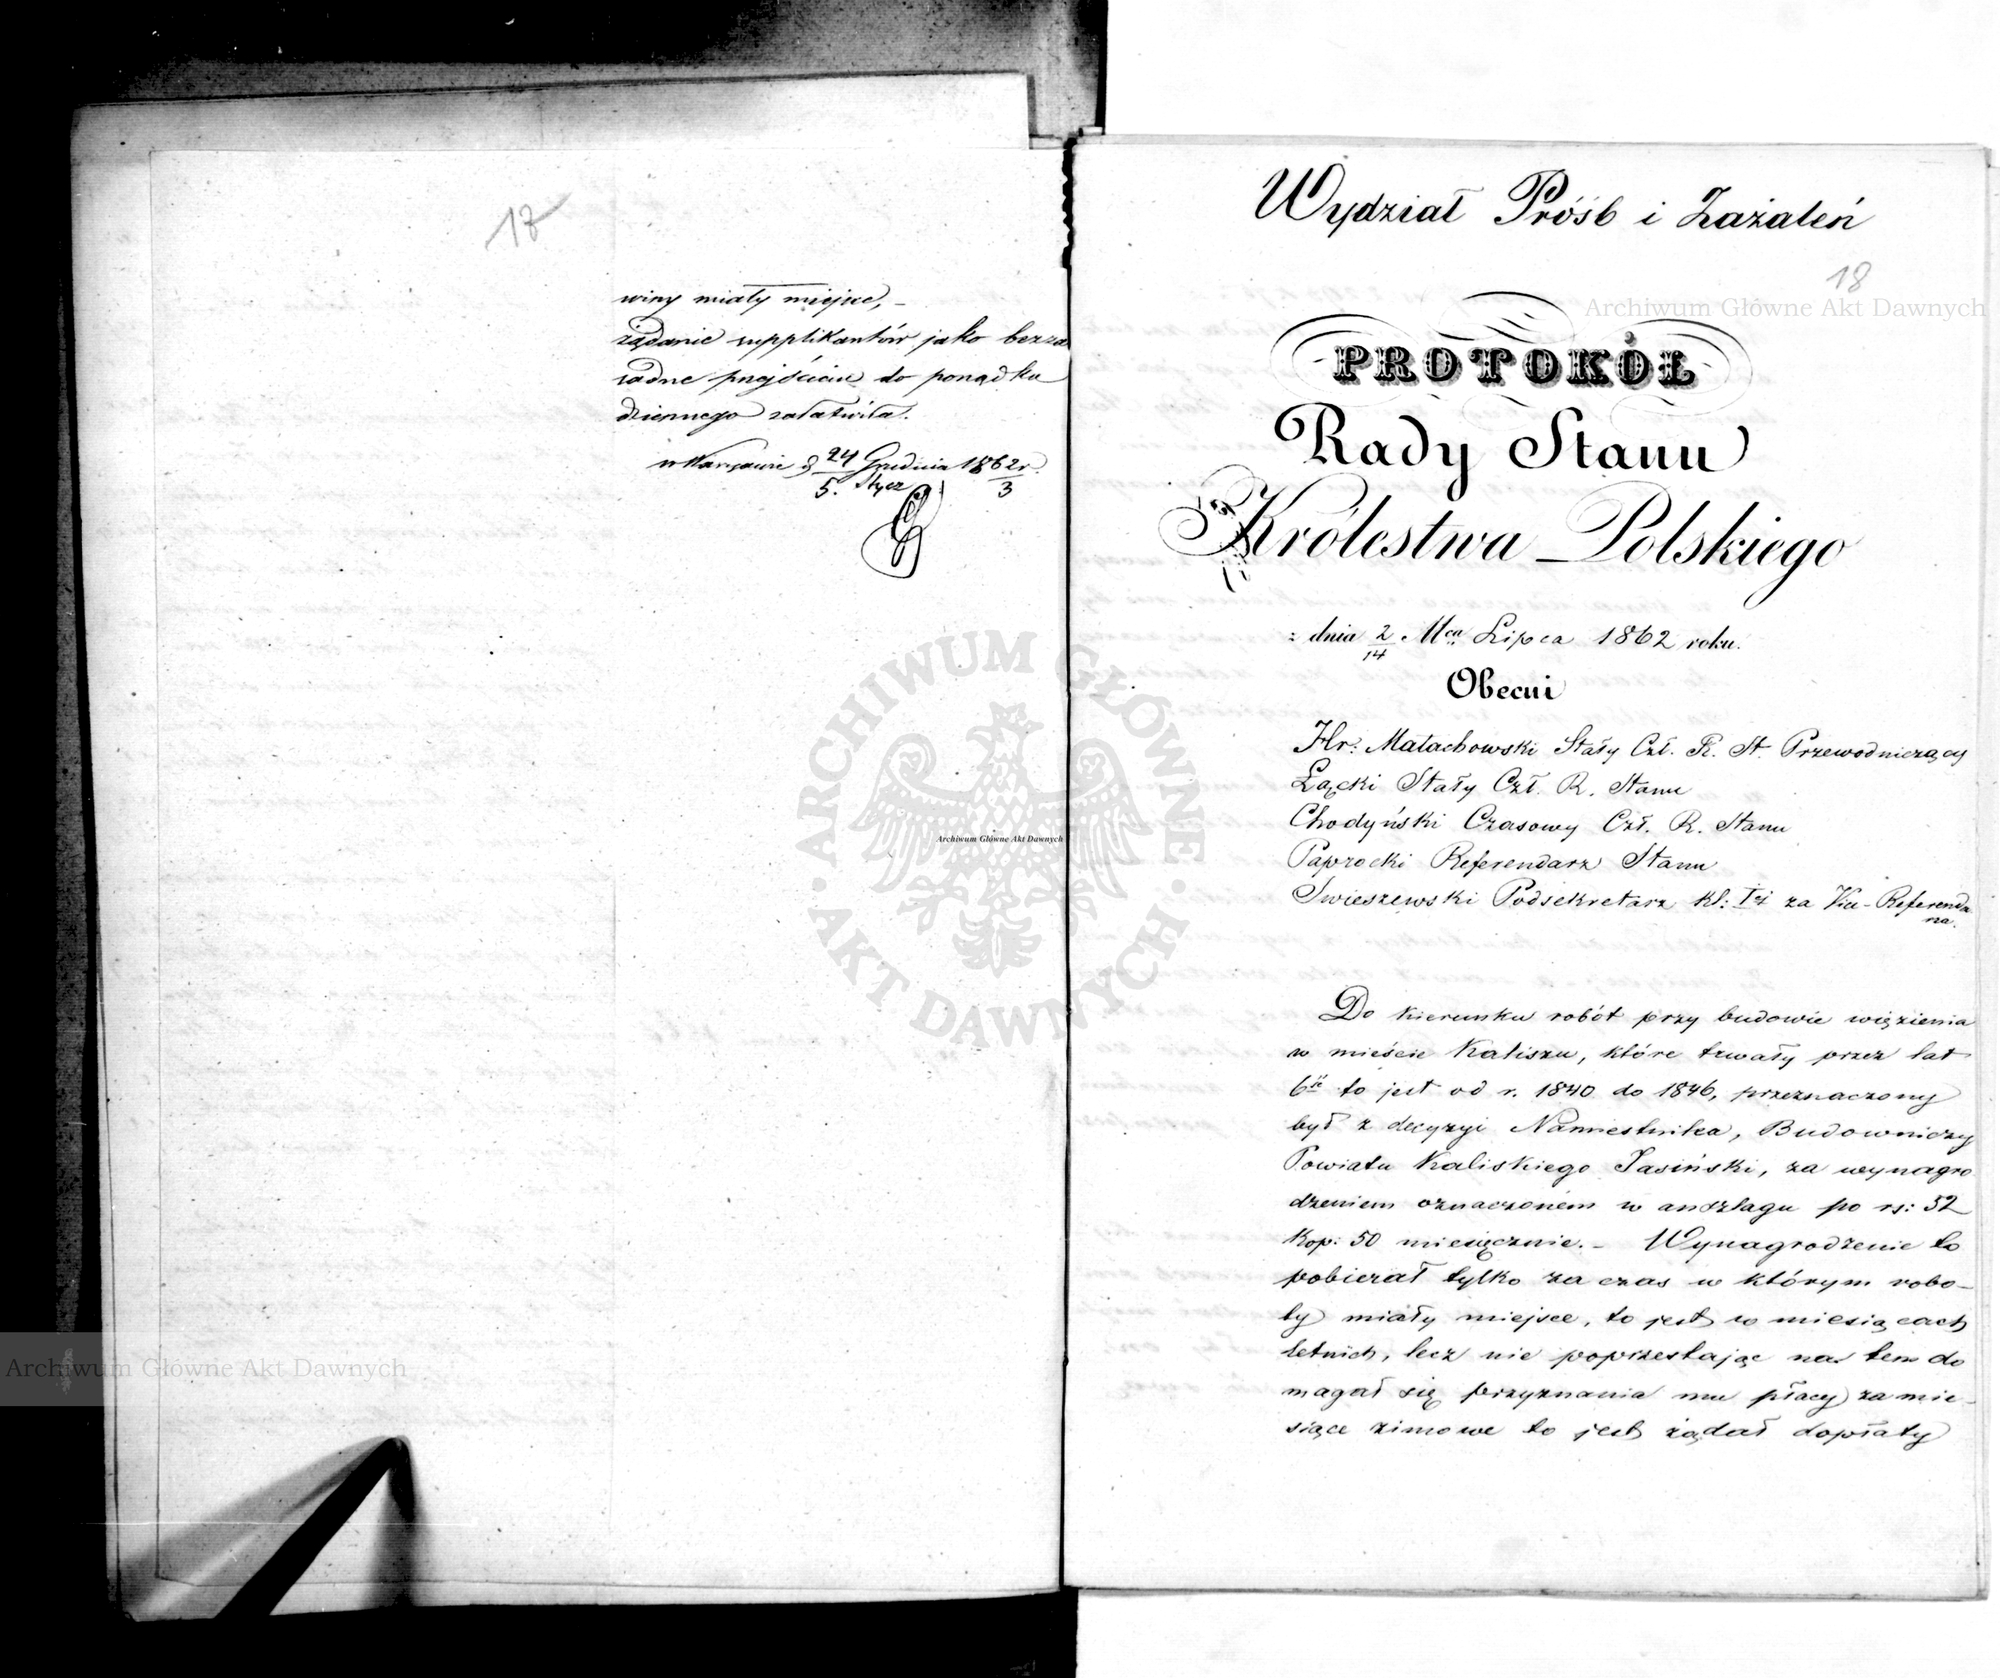 17
winy miały miejsce, –
żądanie supplikantów jako bezza
sadne przejściem do porządku
dziennego załatwiła.
w Warszawie d 24 Grudnia 1862 r.
5. Stycz 3
Wydział Próśb i Zażaleń
18
Archiwum Główne Akt Dawnych
PROTOKÓŁ
Rady Stanu
Królestwa Polskiego
z dnia 2/14 Mca Lipca 1862 roku.
Obecni
Hr: Małachowski Stały Czł. R. St. Przewodniczący
Łącki Stały Czł. R. Stanu
Chodyński Czasowy Czł. R. Stanu
Paprocki Referendarz Stanu
Swieszewski Podsekretarz kl: Iej za Vice-Referenda
rza.
Do kierunku robót przy budowie więzienia
w mieście Kaliszu, które trwały przez lat
6ść to jest od r. 1840 do 1846, przeznaczony
był z decyzyi Namiestnika, Budowniczy
Powiatu Kaliskiego Jasiński, za wynagro
dzeniem oznaczoném w anszlagu po rs: 52
kop: 50 miesięcznie. – Wynagrodzenie to
pobierał tylko za czas w którym robo-
ty miały miejsce, to jest w miesiącach
letnich, lecz nie poprzestając na tem do
magał się przyznania mu płacy za mie-
siące zimowe to jest żądał dopłaty
ARCHIWUM GŁÓWNE
AKT DAWNYCH
Archiwum Główne Akt Dawnych
Archiwum Główne Akt Dawnych